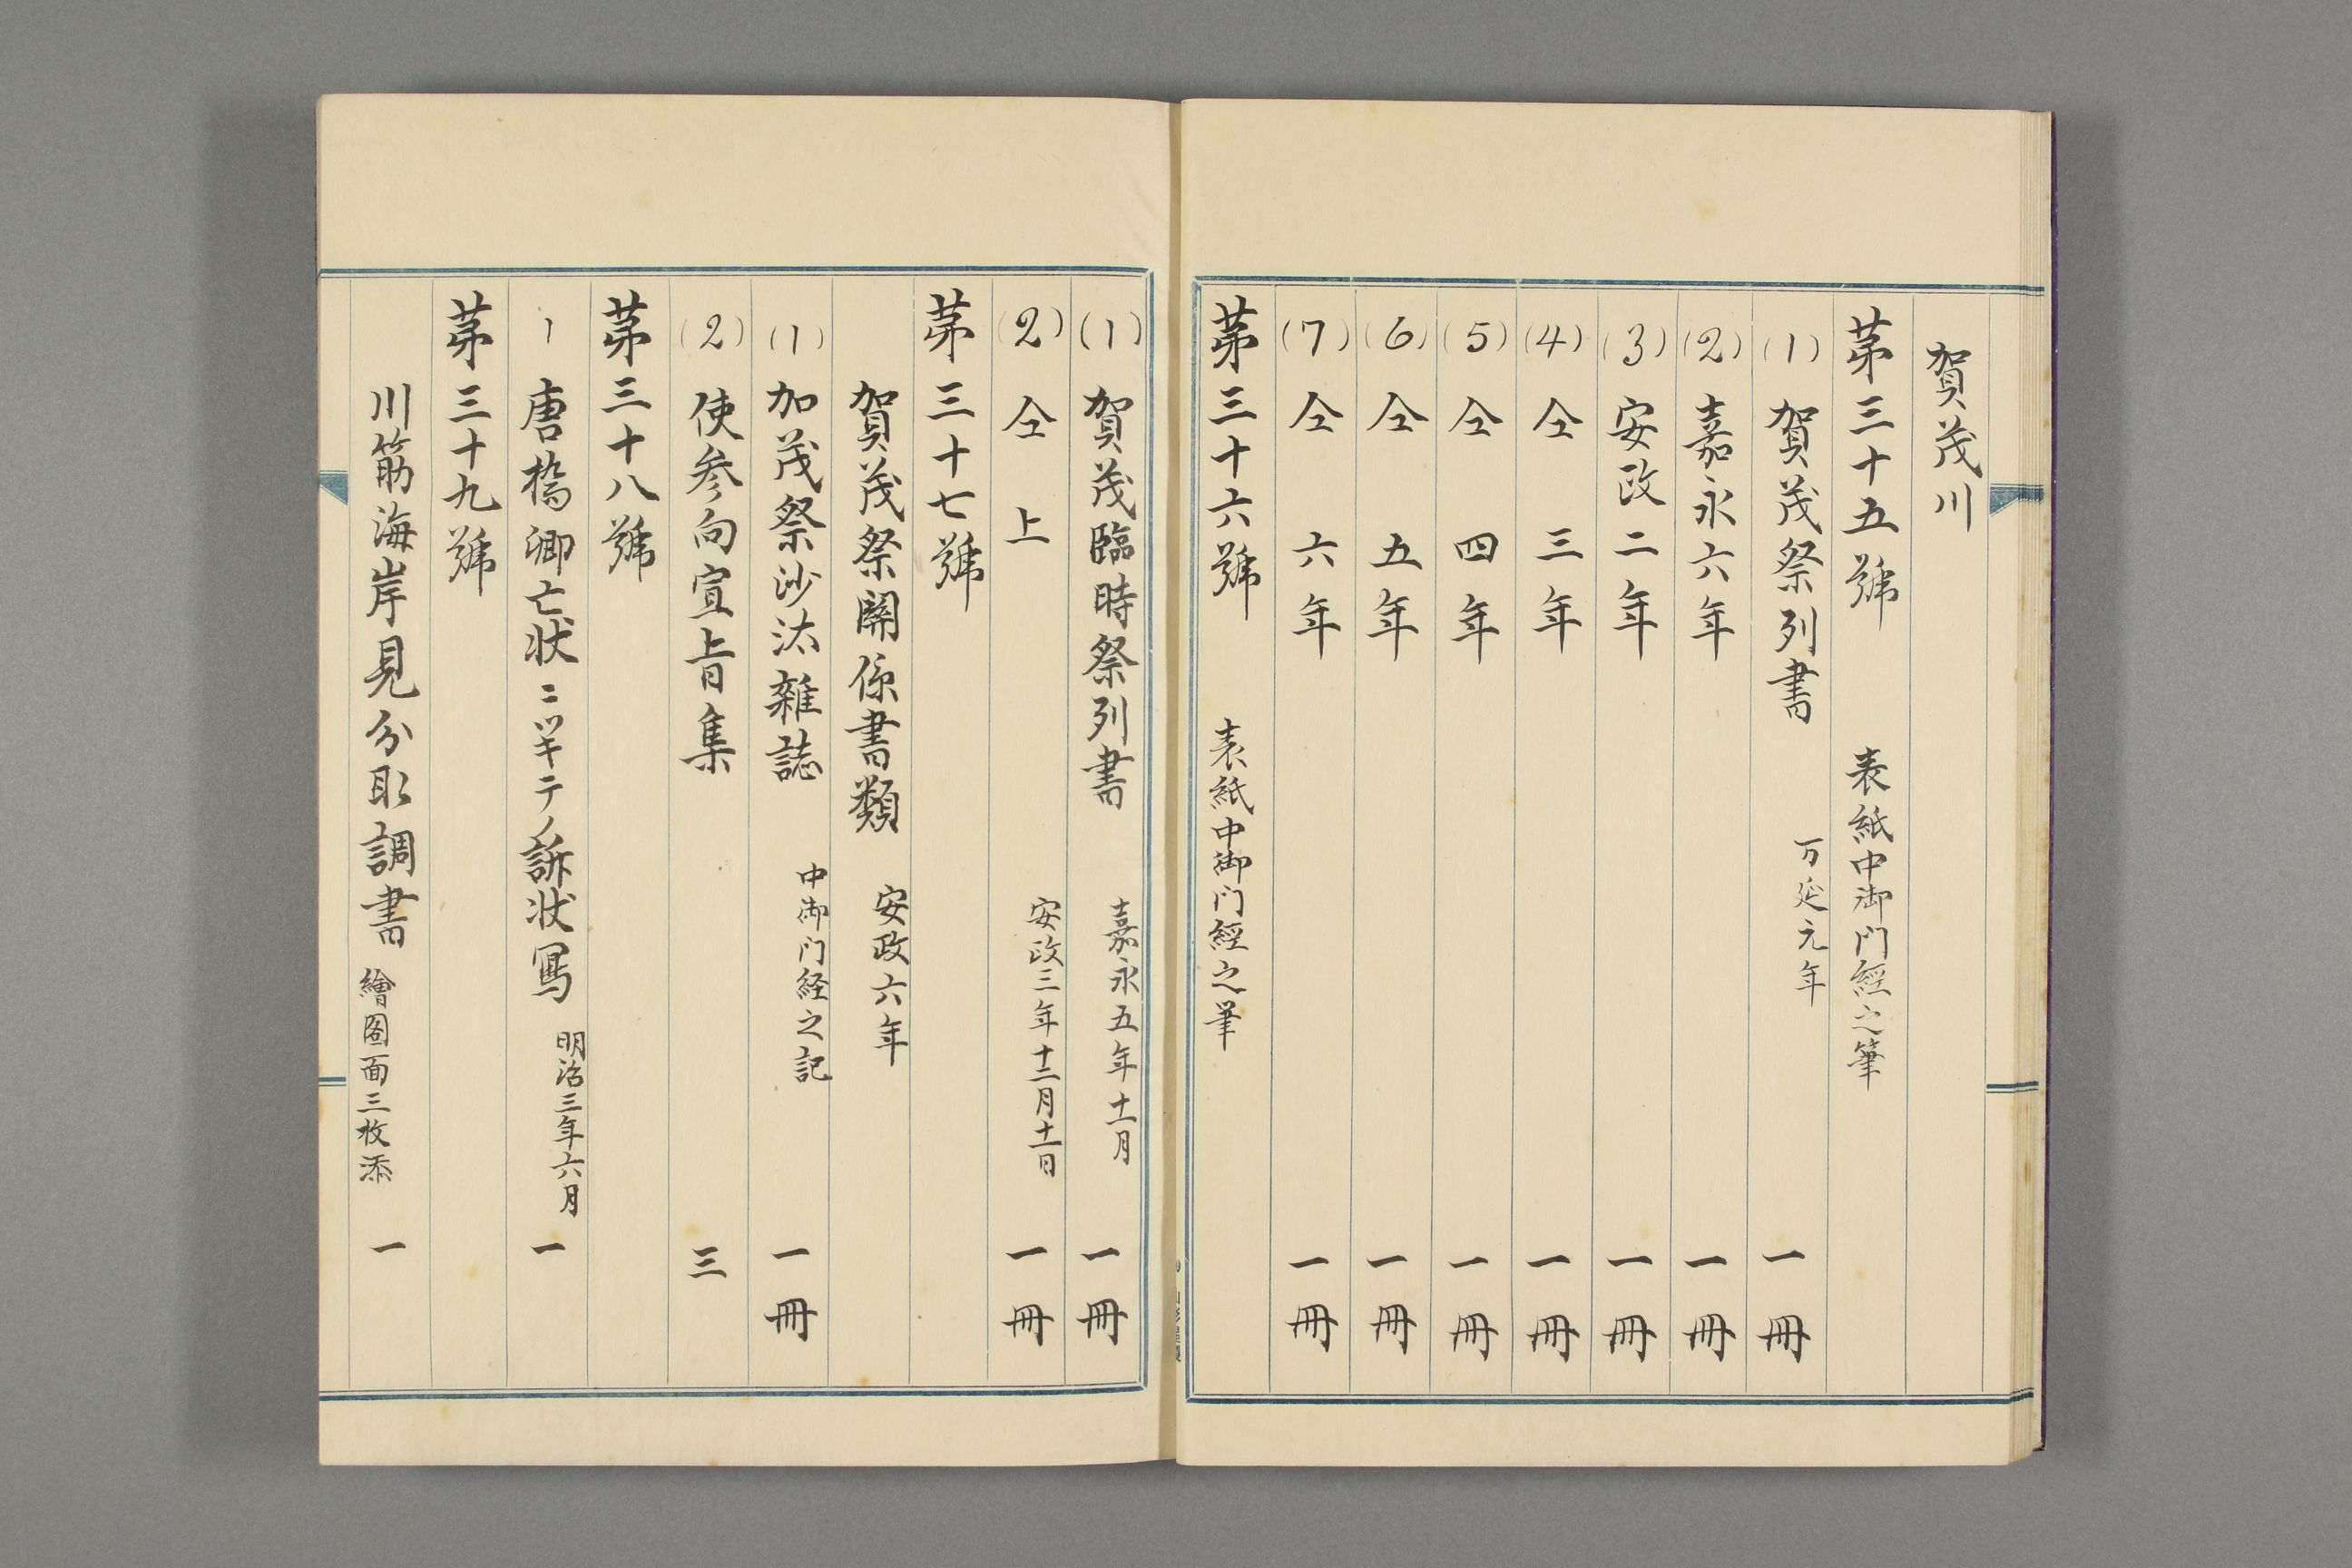 賀茂川
第三十五號　表紙中御門經之筆
(1) 賀茂祭列書　万延元年　一冊
(2) 嘉永六年　一冊
(3) 安政二年　一冊
(4) 仝　三年　一冊
(5) 仝　四年　一冊
(6) 仝　五年　一冊
(7) 仝　六年　一冊
第三十六號　表紙中御門經之筆
(1) 賀茂臨時祭列書　嘉永五年十一月　一冊
(2) 仝上　安政三年十二月十一日　一冊
第三十七號
賀茂祭関係書類　安政六年
(1) 加茂祭沙汰雑誌　中御门経之記　一冊
(2) 使参向宣旨集　三
第三十八號
1 唐橋卿亡状ニツキテノ訴状寫　明治三年六月　一
第三十九號
川筋海岸見分取調書　繪图面三枚添　一